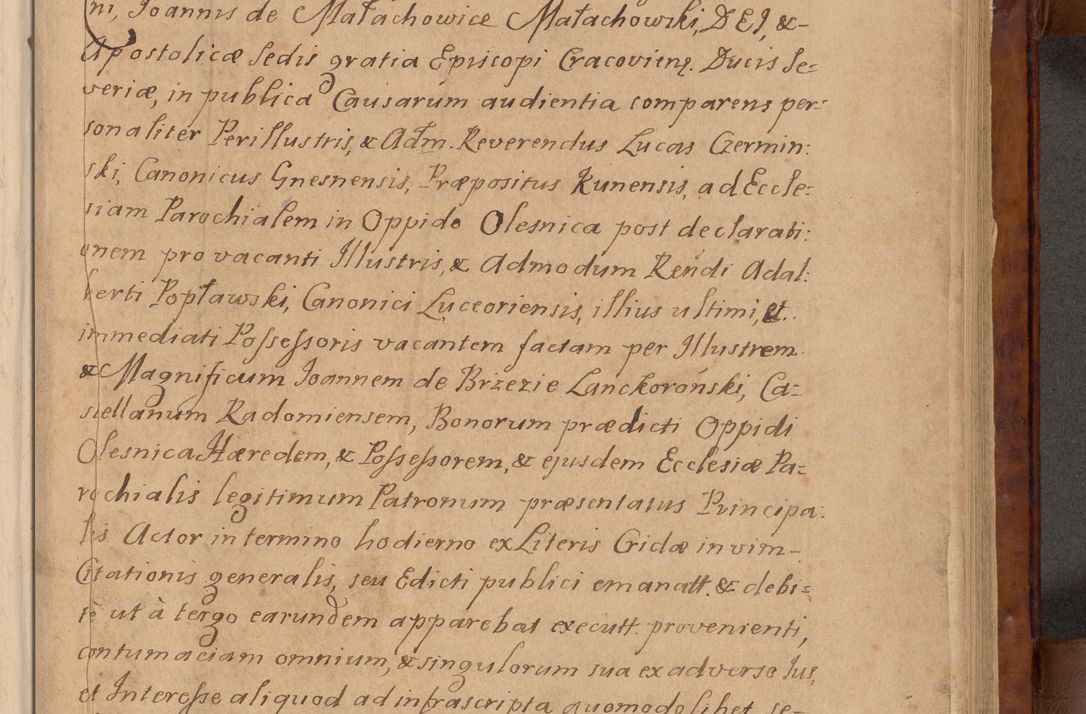 ni, Joannis de Małachowice Małachowski, DEI, &-
Apostolicæ Sedis gratia Episcopi Cracovienȝ. Ducis Se=
veriæ, in publica Causarum audientia comparens per=
sonaliter Perillustris, & Adm. Reverendus Lucas Czermin:
ski, Canonicus Gnesnensis, Præpositus Kunensis, ad Eccle=
siam Parochialem in Oppido Olesnica post declarati:
onem pro vacanti Illustris, & Admodum Rendi Adal:
berti Popławski, Canonici Luceoriensis, illius ultimi, et
immediati Possessoris vacantem factam per Illustrem
& Magnificum Joannem de Brzezie Lanckoroński, Ca=
stellanum Radomiensem, Bonorum prædicti Oppidi
Olesnica Hæredem, & Possessorem, & ejusdem Ecclesiæ Pa=
rochialis legitimum Patronum præsentatus Principa:
lis Actor in termino hodierno ex Literis Cridæ in vim-
Citationis generalis, seu Edicti publici emanatt. & debi=
tè ut à tergo earundem apparebat executt. provenienti,
contumaciam omnium, & singulorum sua ex adverso Jus,
et Interesse aliquod ad infrascripta quomodolibet se-